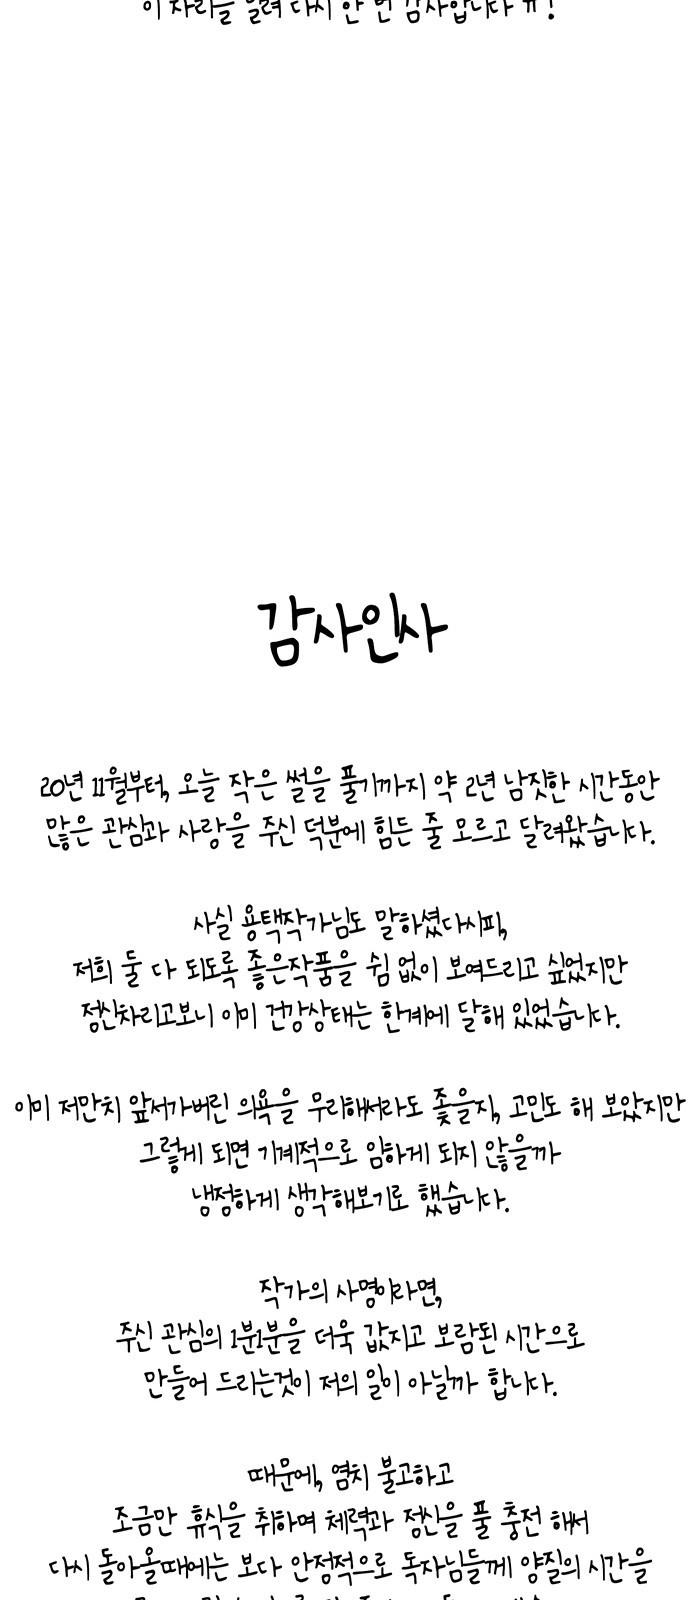 이 자리를 빌려 다시 한 번 감사합니다 ㅠ!
감사인사
20년 11월부터, 오늘 작은 썰을 풀기까지 약 2년 남짓한 시간동안
많은 관심과 사랑을 주신 덕분에 힘든 줄 모르고 달려왔습니다.
사실 용택작가님도 말하셨다시피,
저희 둘 다 되도록 좋은작품을 쉼 없이 보여드리고 싶었지만
정신차리고보니 이미 건강상태는 한계에 달해 있었습니다.
이미 저만치 앞서가버린 의욕을 무리해서라도 좇을지, 고민도 해 보았지만
그렇게 되면 기계적으로 임하게 되지 않을까
냉정하게 생각해보기로 했습니다.
작가의 사명이라면,
주신 관심의 1분1분을 더욱 값지고 보람된 시간으로
만들어 드리는것이 저의 일이 아닐까 합니다.
때문에, 염치 불고하고
조금만 휴식을 취하며 체력과 정신을 풀 충전 해서
다시 돌아올때에는 보다 안정적으로 독자님들께 양질의 시간을